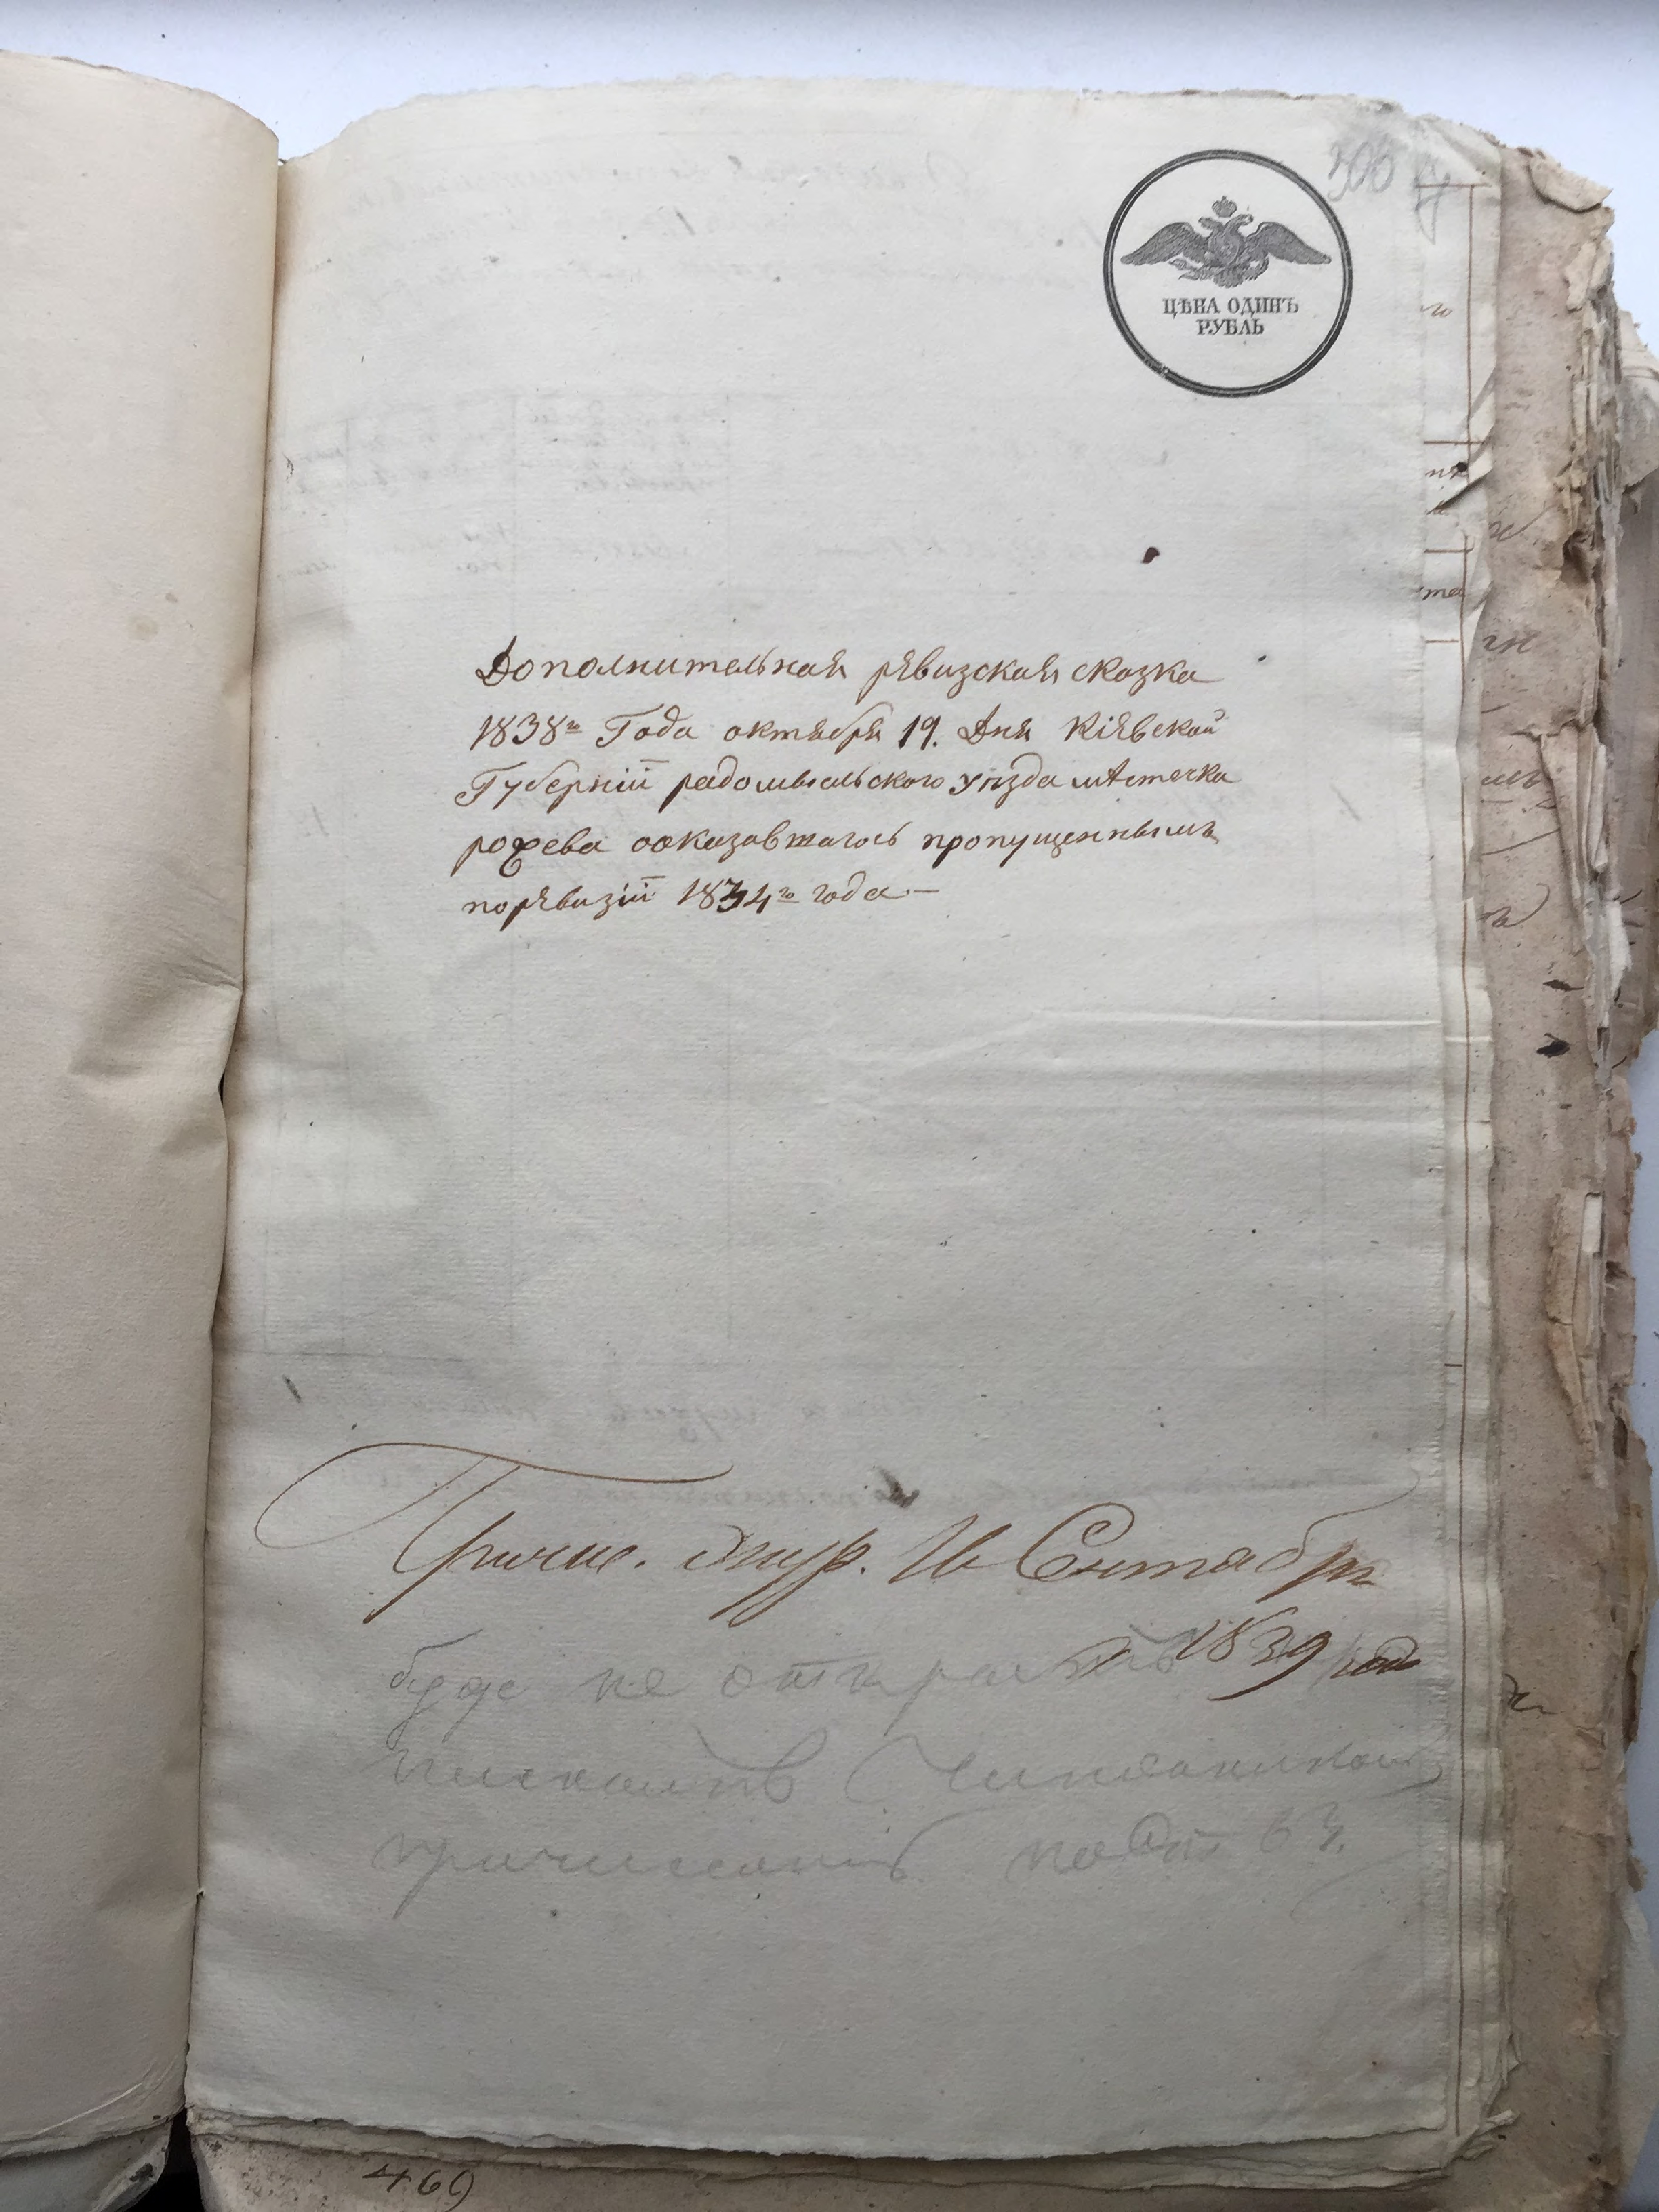 306
ЦѢНА ОДИНЪ
РУБЛЬ
Дополнительная рѣвизская сказка
1838го Года октября 19. Дня Кіѣвской
Губерніи радомысльского уѣзда мѣстечка
рожева оказавшагось пропущеннымъ
порѣвизіи 1834го года —
Причис. Жур. 16 Сентября
1839 года
буде не открыть
причисленіѣ
469